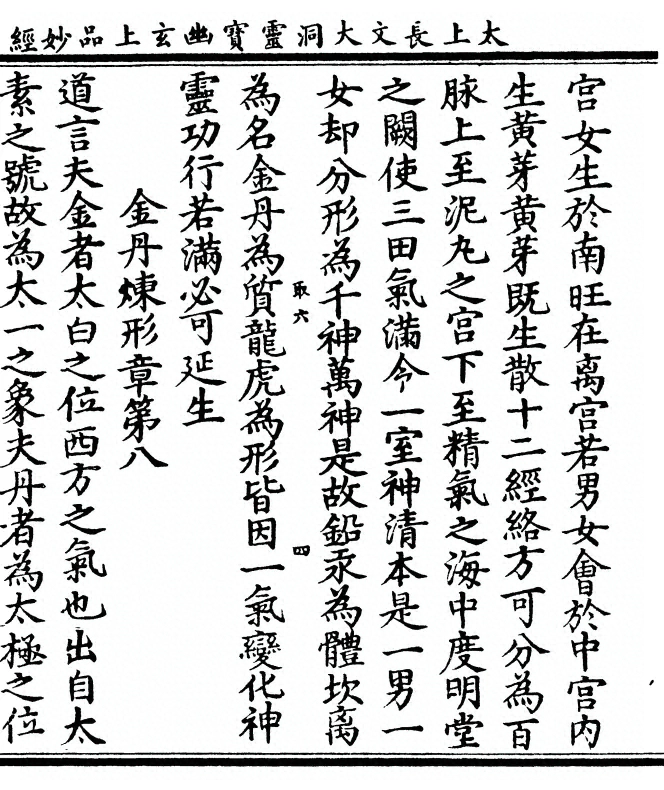 太上長文大洞靈寶幽玄上品妙經
宮女生於南旺在离宮若男女會於中宮内
生黄芽黄芽既生散十二經絡方可分為百
脉上至泥丸之宮下至精氣之海中度明堂
之闕使三田氣滿令一室神清本是一男一
女却分形為千神萬神是故鉛汞為體坎离
為名金丹為質龍虎為形皆因一氣變化神
取六
四
靈功行若滿必可延生
金丹煉形章第八
道言夫金者太白之位西方之氣也出自太
素之號故為太一之象夫丹者為太極之位